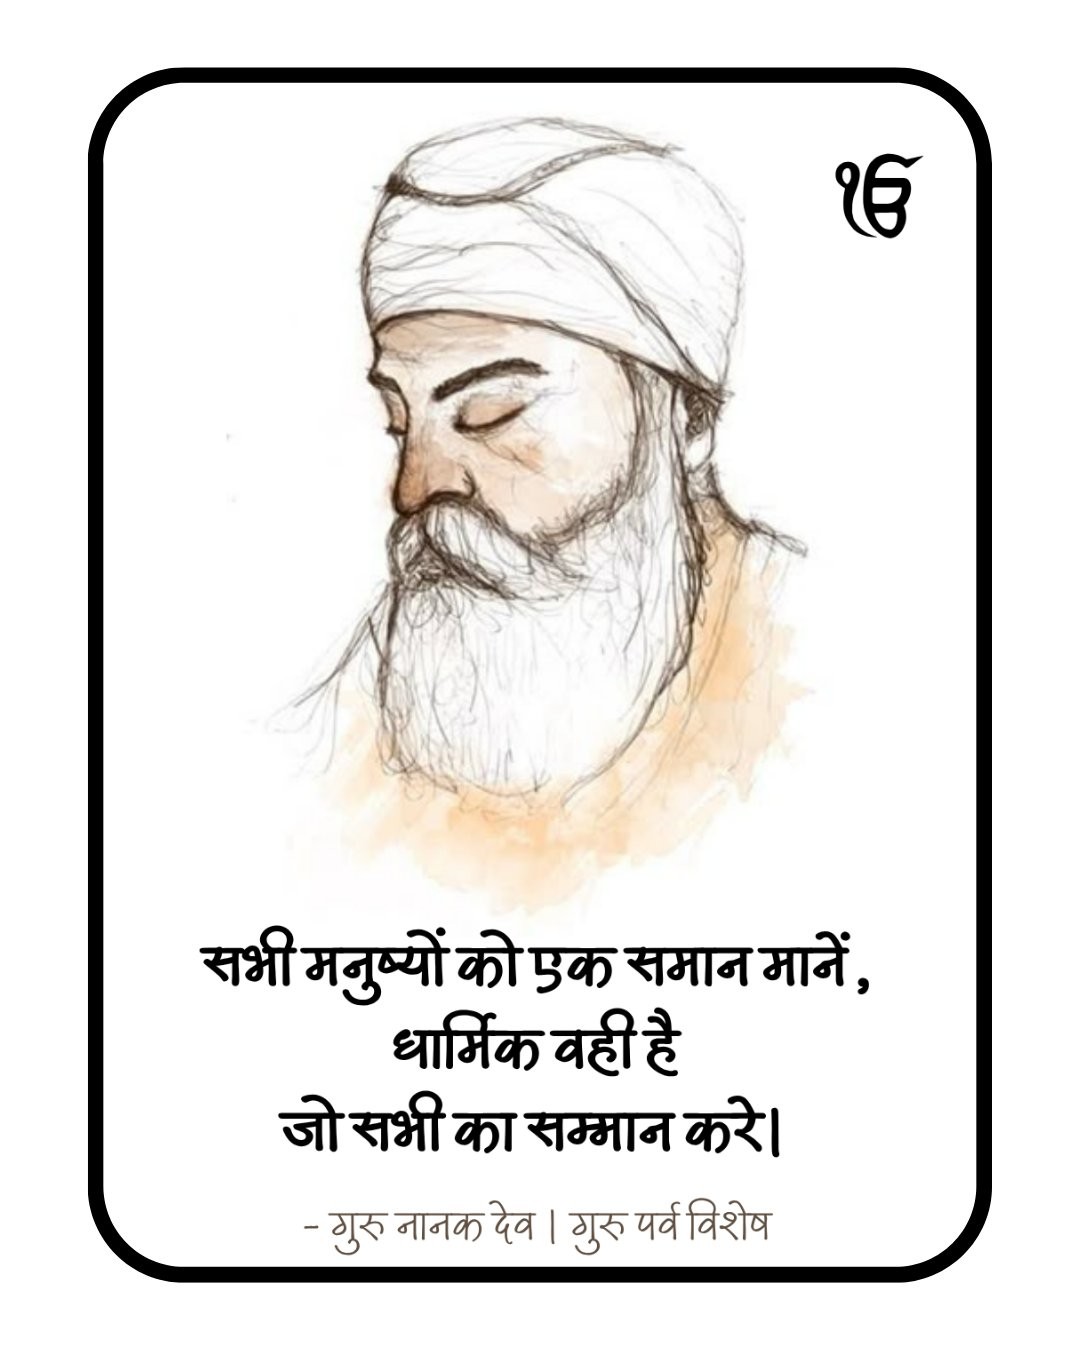 ੴ
सभी मनुष्यों को एक समान मानें,
धार्मिक वही है
जो सभी का सम्मान करे।
- गुरु नानक देव | गुरु पर्व विशेष